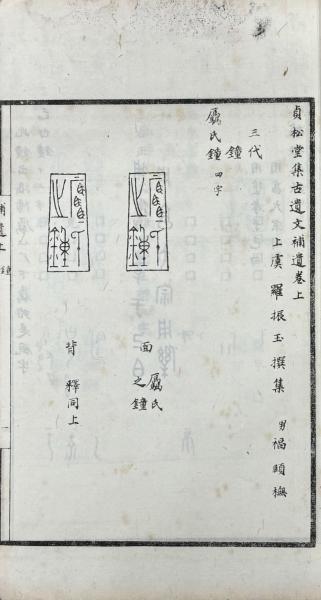 貞松堂集古遺文補遺卷上
上虞羅振玉撰集 男福頤橅
三代
鐘
鷹氏鐘 四字
面
鷹氏
之鐘
背
釋同上
補遺上
鐘
一